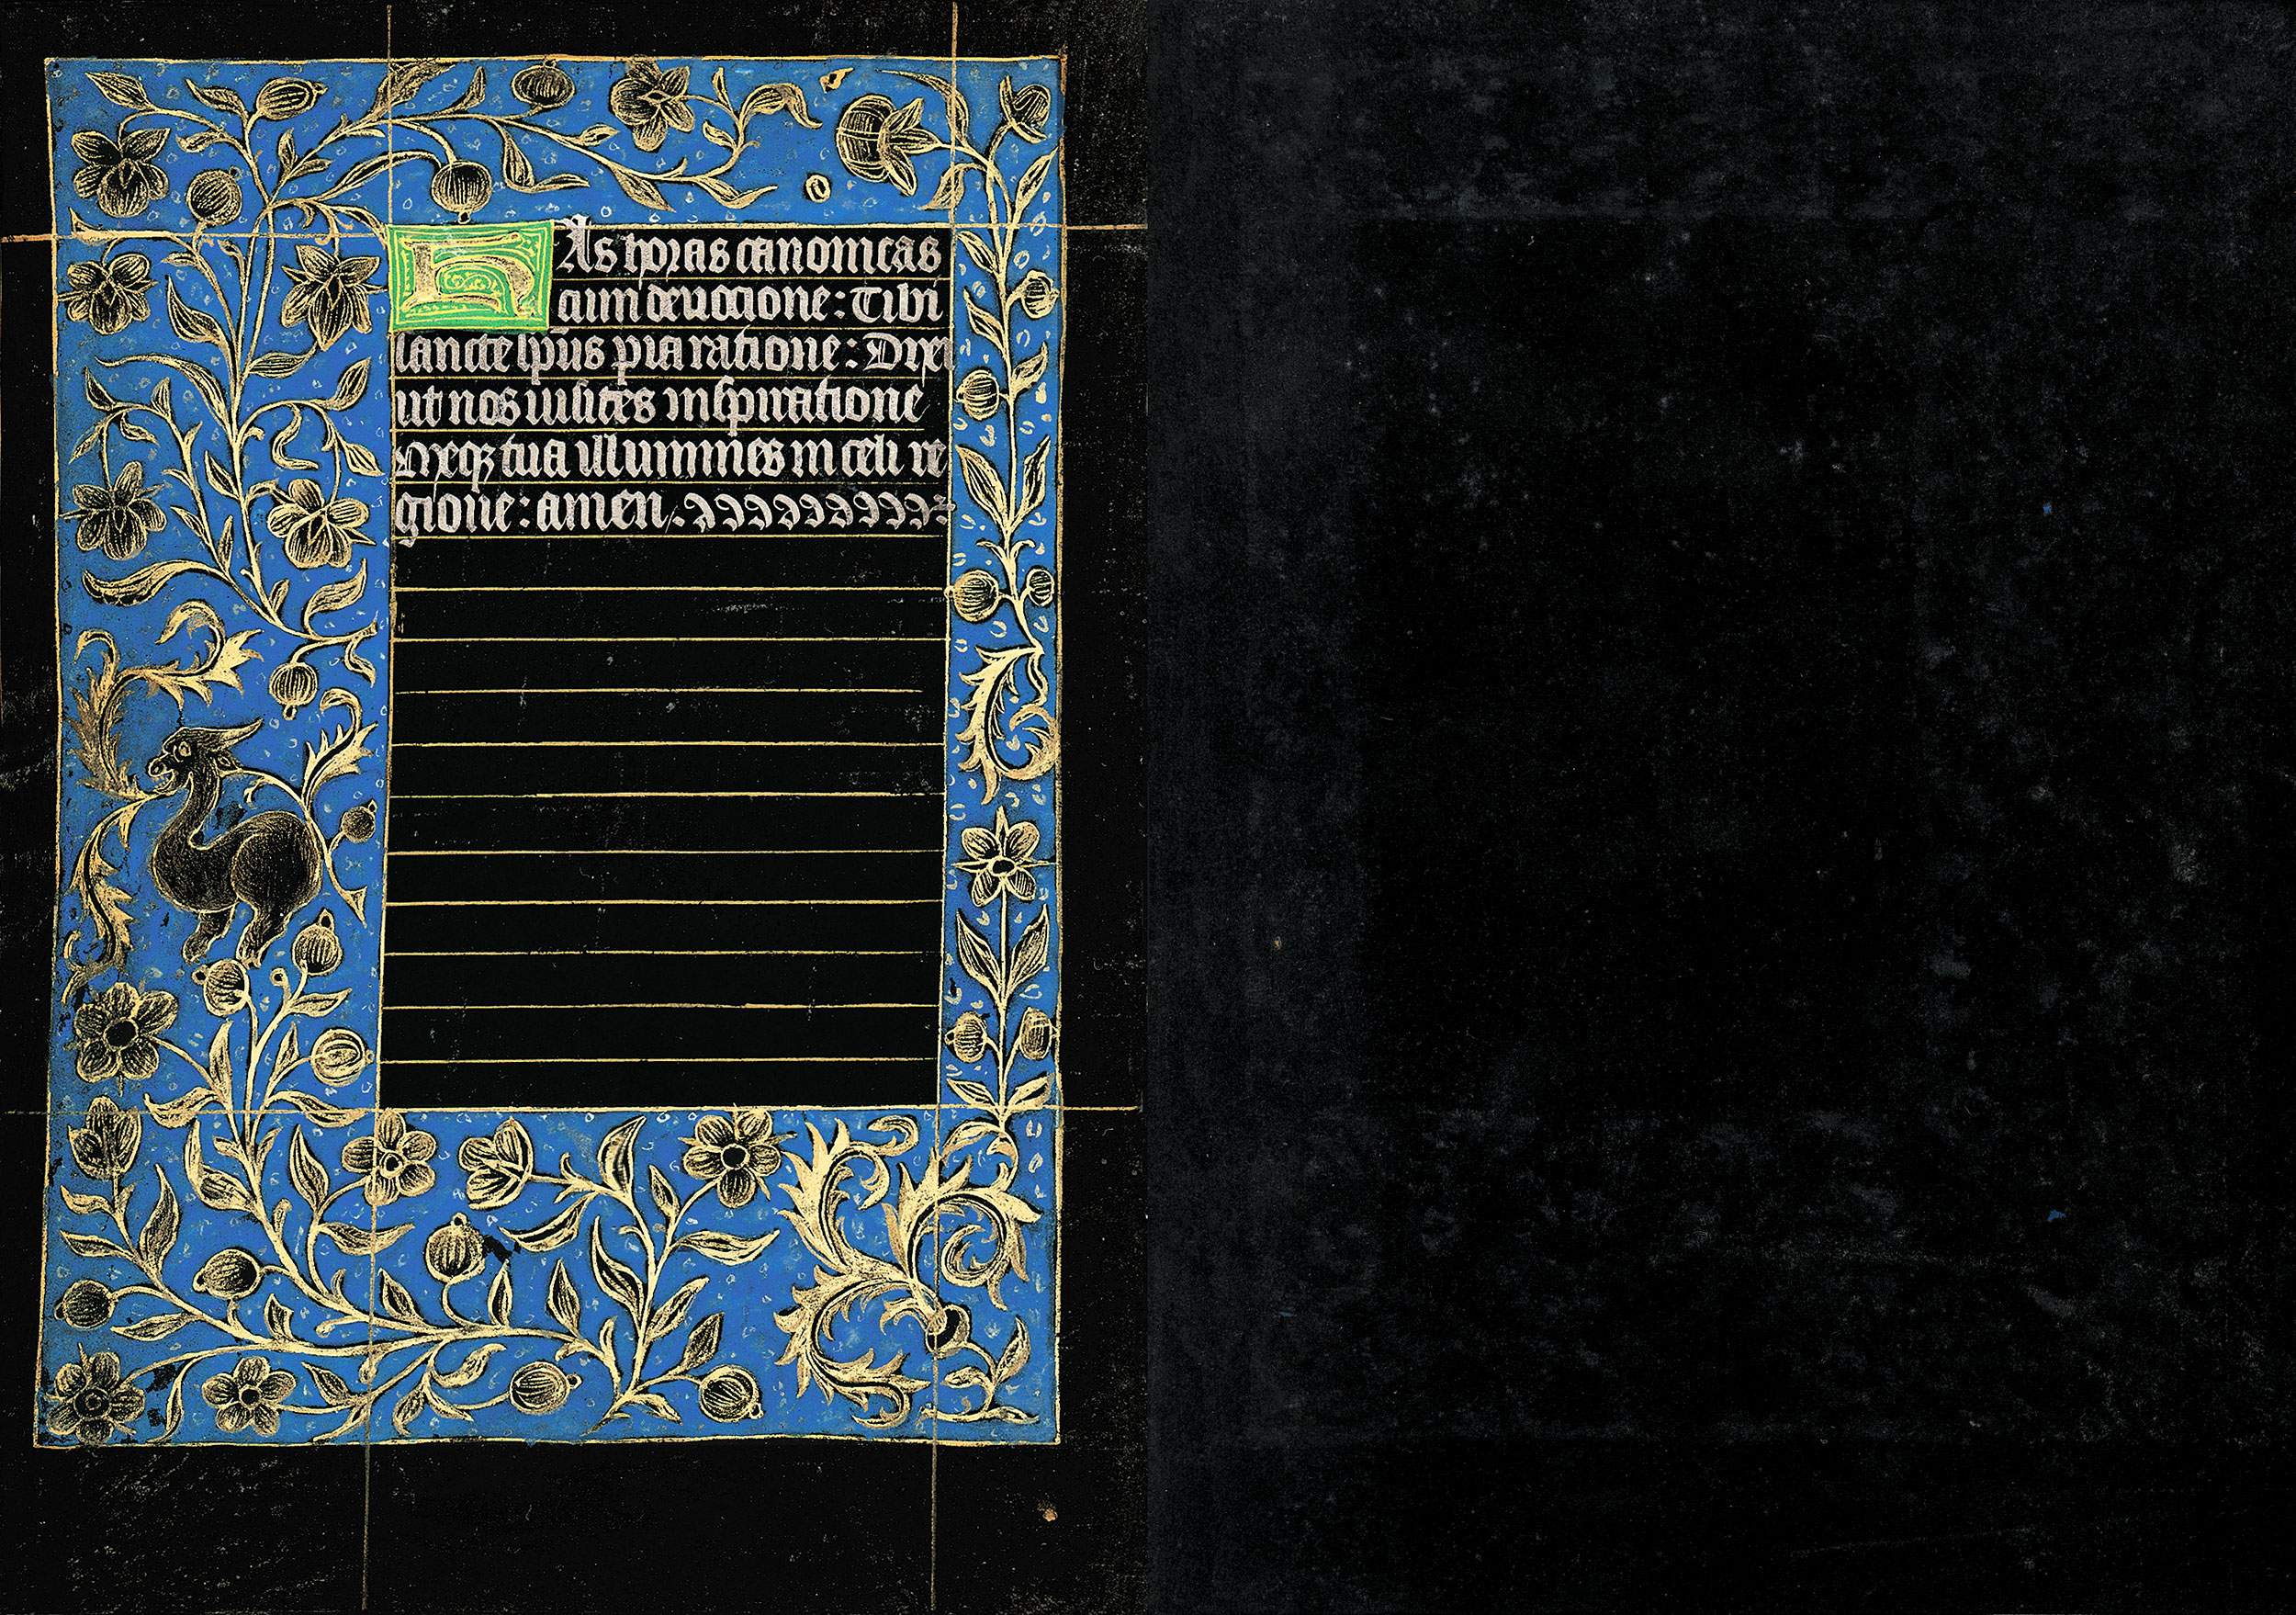 HAs horas canonicas
cum deuocione: Tibi
sancte sp̄us pia ratione: Dixi
ut nos uisites inspiratione
Meq̨ tua illumines in celi re
gione: amen.